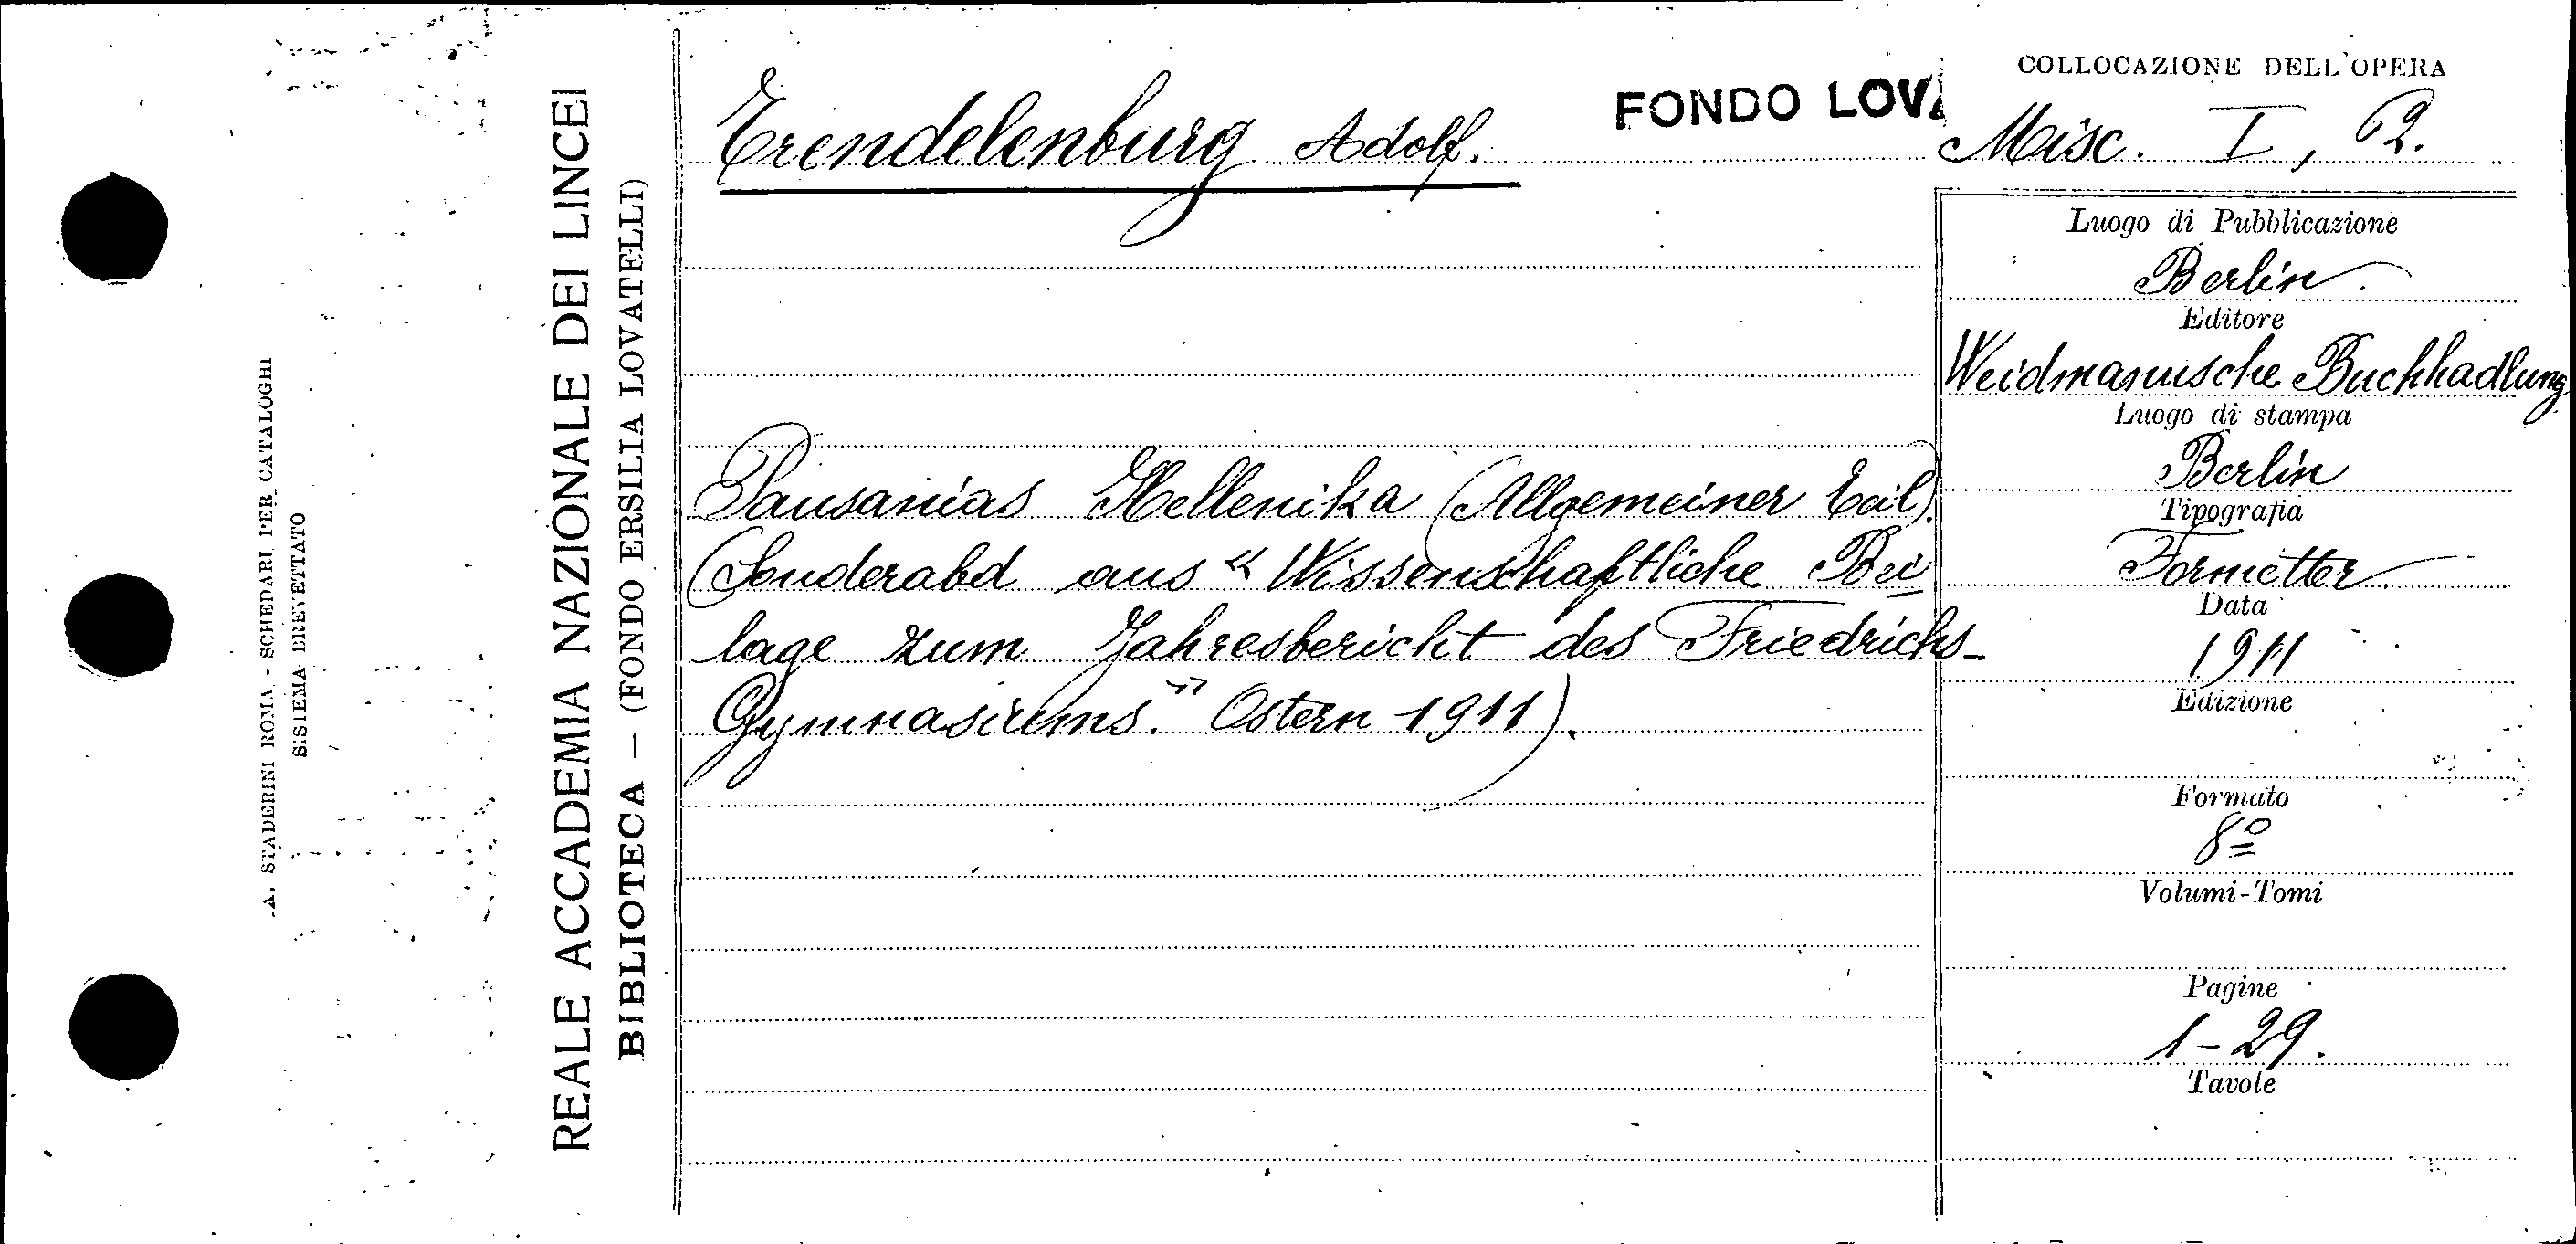 A. STADERINI ROMA - SCHEDARI PER CATALOGHI
SISTEMA BREVETTATO
REALE ACCADEMIA NAZIONALE DEI LINCEI
BIBLIOTECA — (FONDO ERSILIA LOVATELLI)
Trendelenburg Adolf.
FONDO LOVA
Pausanias Hellenika (Allgemeiner Teil).
(Sonderabd aus « Wissenschaftliche Bei
lage zum Jahresbericht des Friedrichs-
Gymnasiums.» Ostern 1911).
COLLOCAZIONE DELL'OPERA
Misc. I, 2.
Luogo di Pubblicazione
Berlin.
Editore
Weidmannsche Buchhadlung
Luogo di stampa
Berlin
Tipografia
Formetter.
Data
1911
Edizione
Formato
8º
Volumi-Tomi
Pagine
1-29.
Tavole